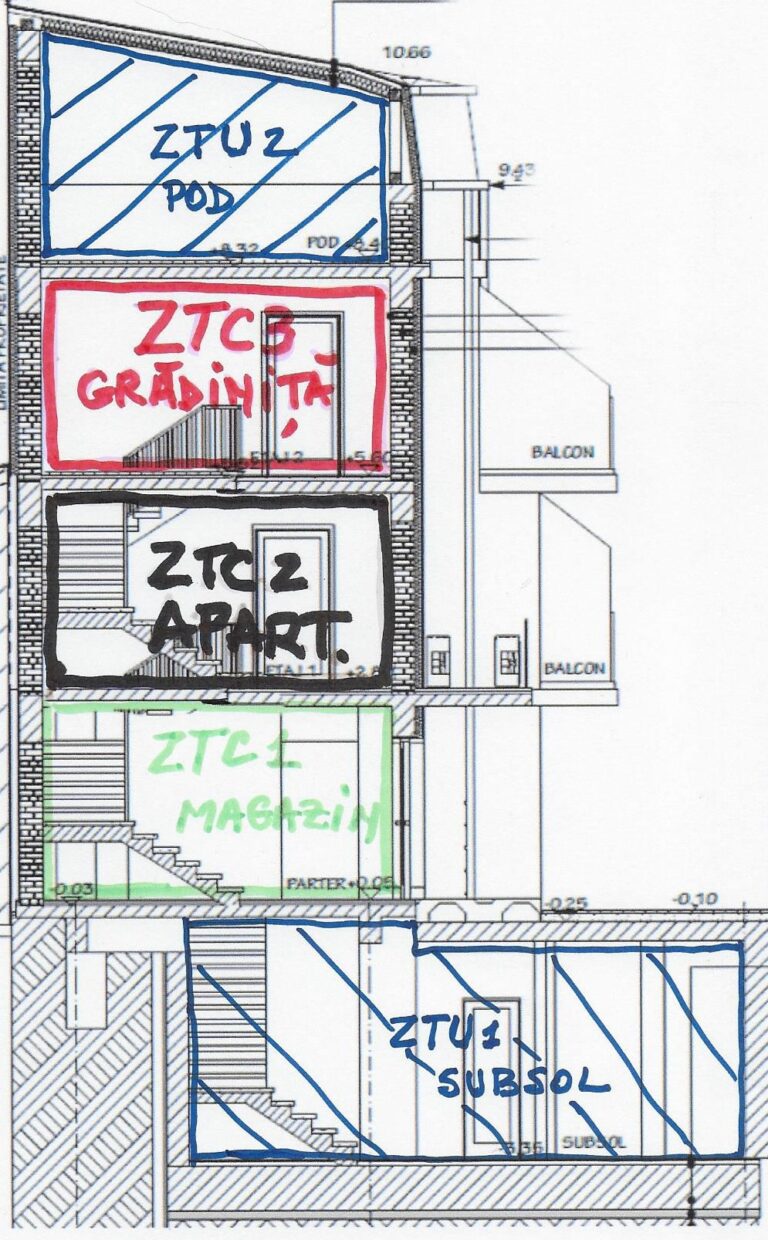 10.66
ZTU2
9.43
POD
+8.32 POD
ZTC3
GRĂDINIȚĂ
BALCON
ETAJ 2 +5.60
ZTC2
APART.
ETAJ 1 +2.8
BALCON
ZTC1
MAGAZIN
-0.03 PARTER +0.05
-0.25 -0.10
ZTU1
SUBSOL
-3.35 SUBSOL